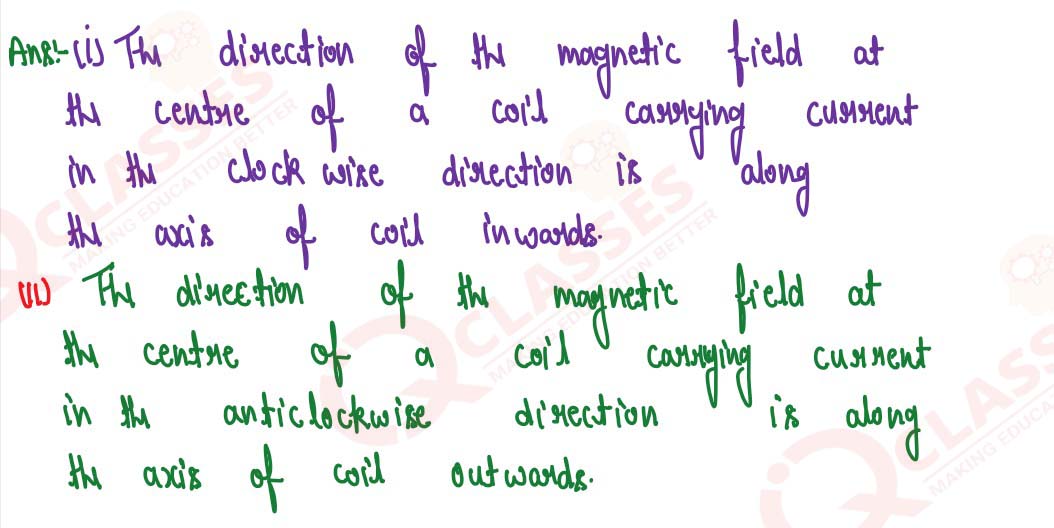 Ans:- (i) The direction of the magnetic field at
the centre of a coil carrying current
in the clock wise direction is along
the axis of coil inwards.
(ii) The direction of the magnetic field at
the centre of a coil carrying current
in the anticlockwise direction is along
the axis of coil outwards.
CLASSES
MAKING EDUCATION BETTER
CLASSES
MAKING EDUCATION BETTER
CLASSES
MAKING EDUC